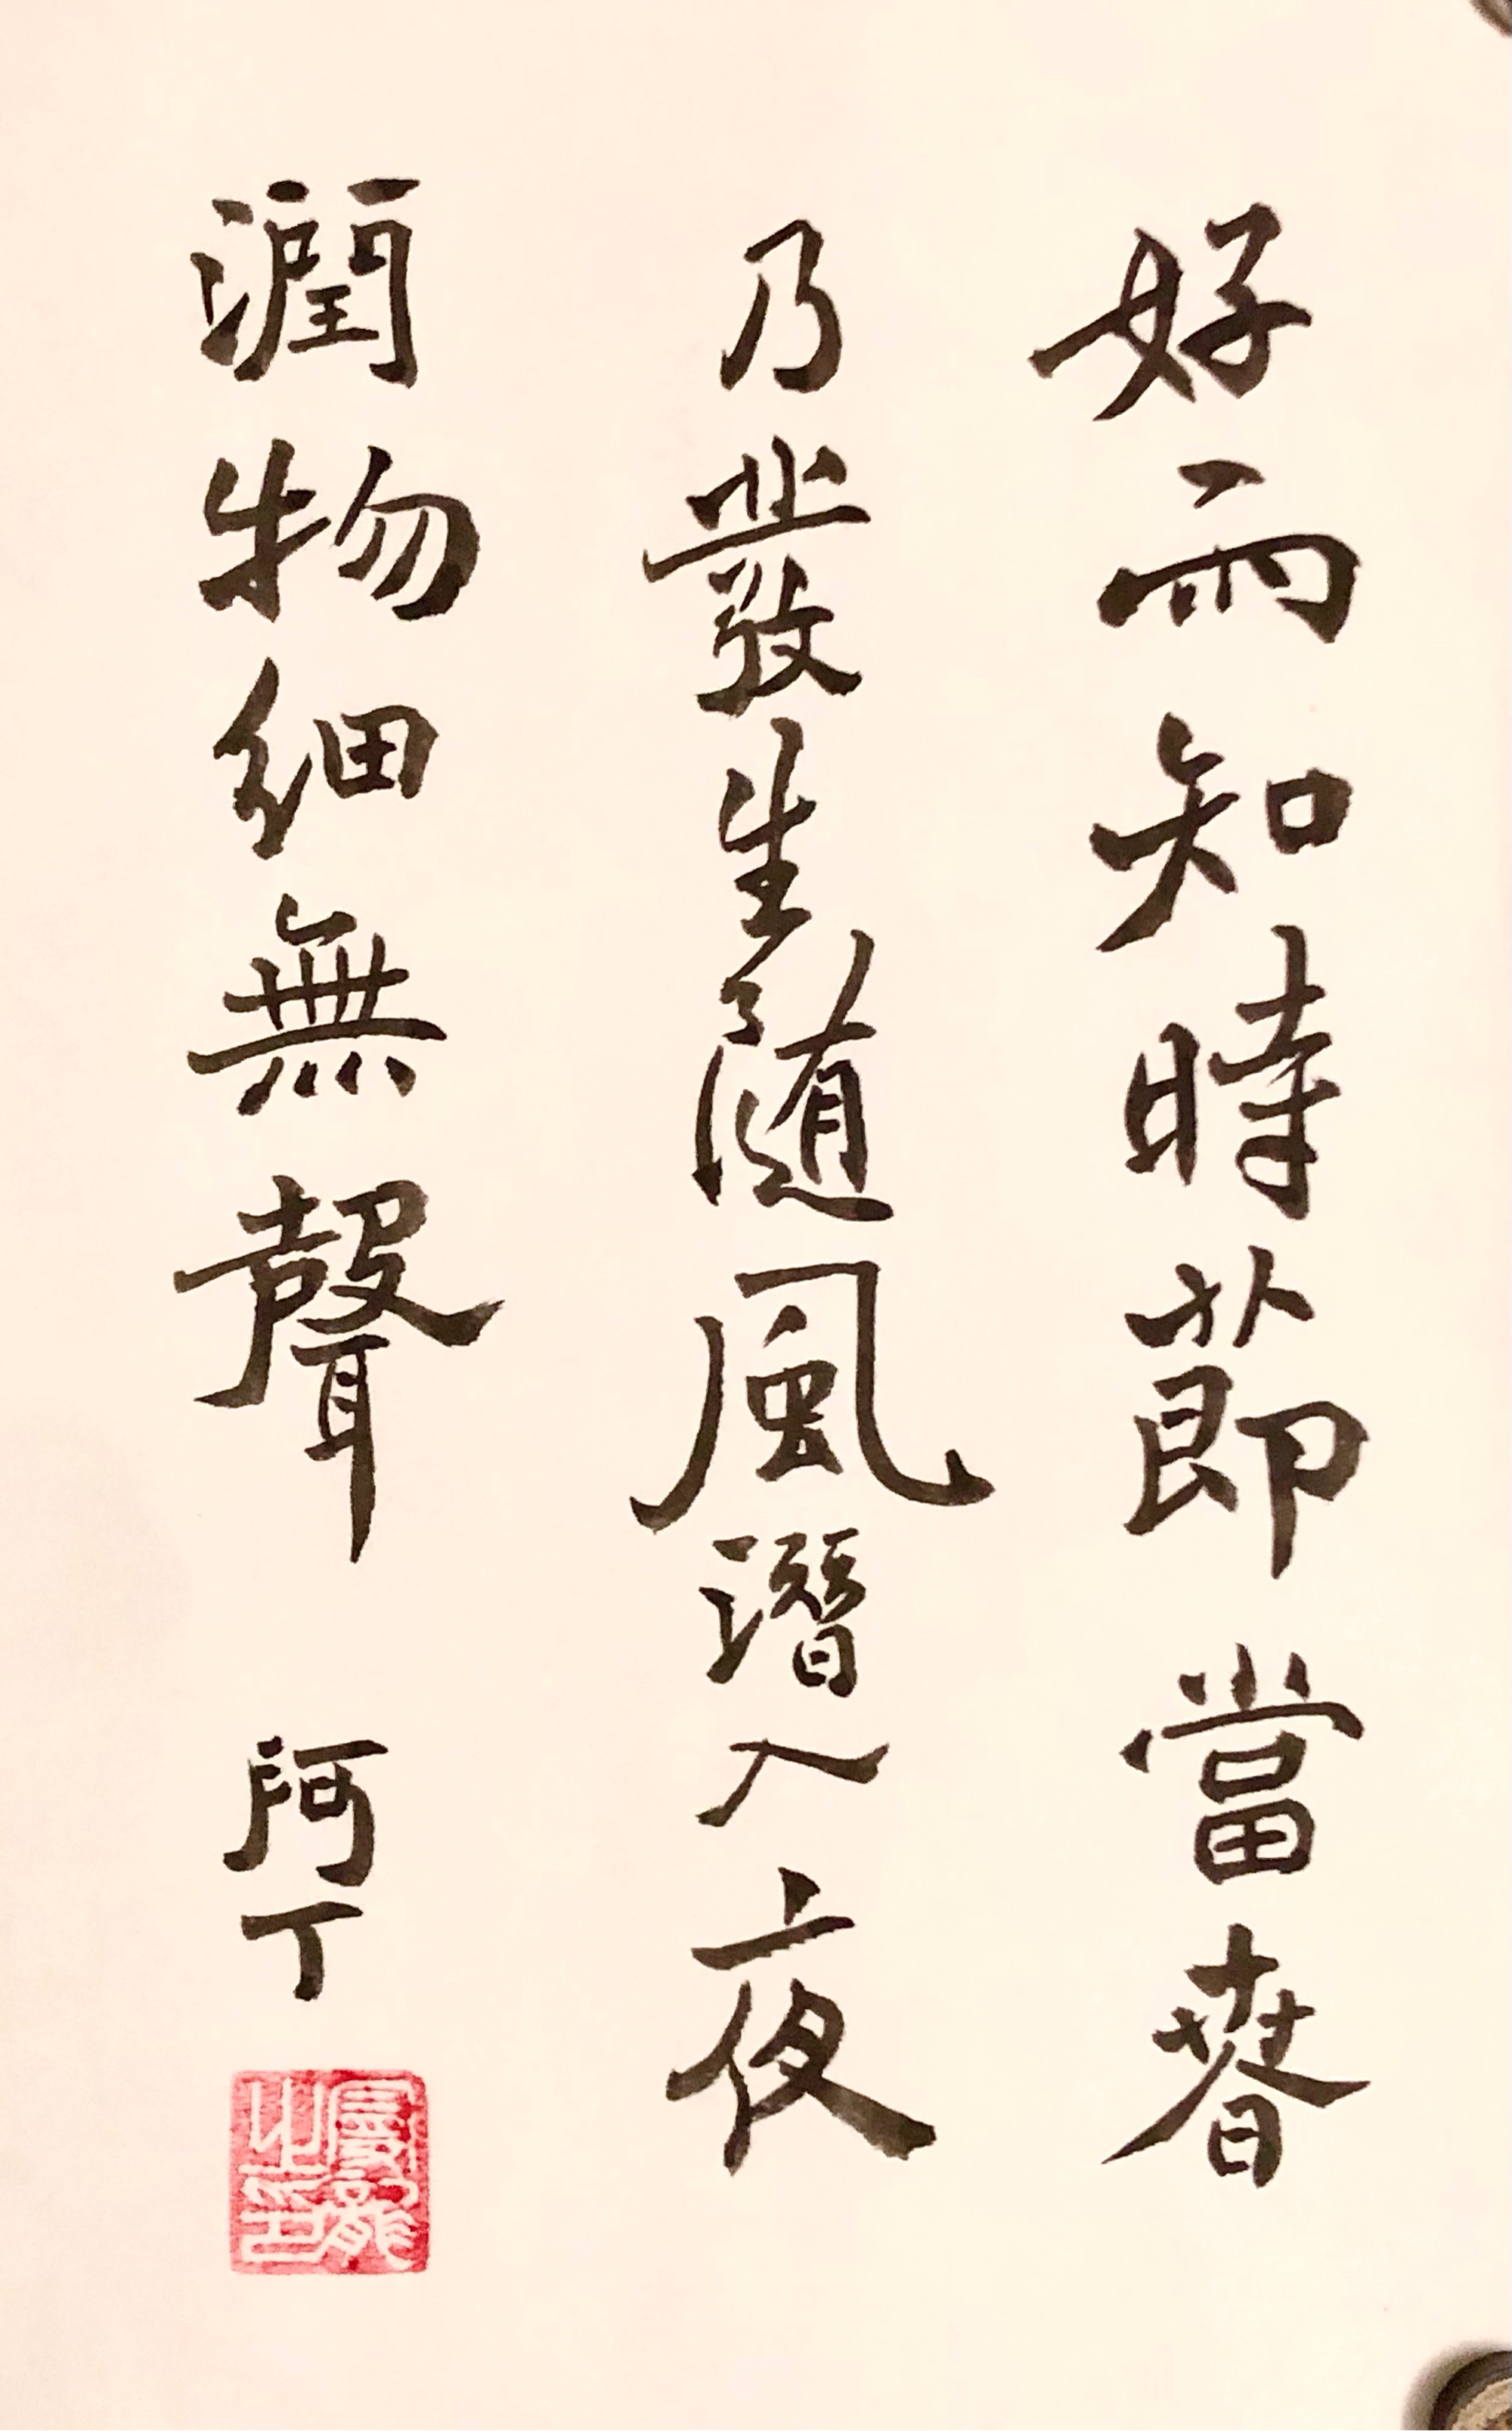 好雨知時節當春
乃發生随風潛入夜
潤物細無聲 阿丁